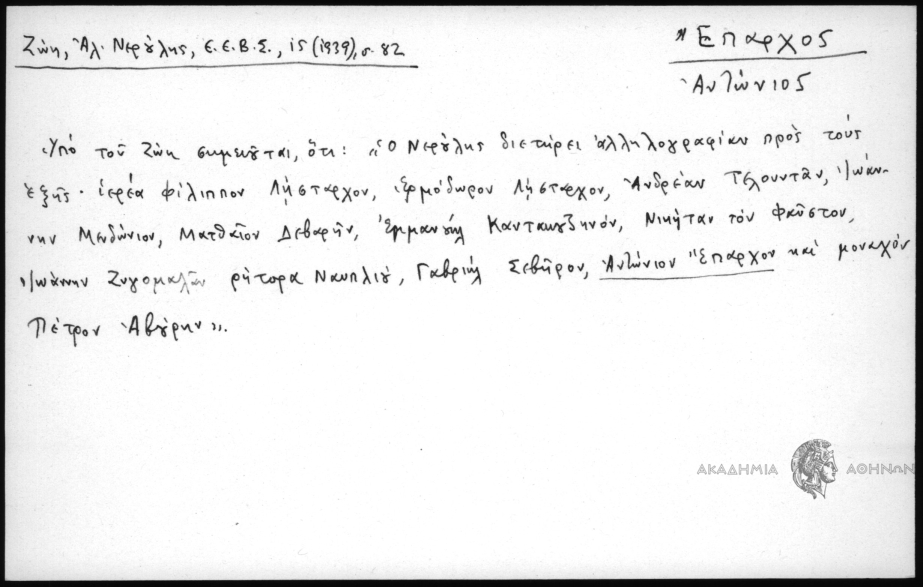 Ζώη, Ἀλ. Νερούλης, Ε.Ε.Β.Σ., ιϛ (1939), σ. 82
Ἔπαρχος
Ἀντώνιος
Ὑπό τοῦ Ζώη σημειοῦται, ὅτι: «Ὁ Νερούλης διετήρει ἀλληλογραφίαν πρὸς τοὺς
ἑξῆς· ἱερέα Φίλιππον Λῄσταρχον, Ἑρμόδωρον Λῄσταρχον, Ἀνδρέαν Τελουντᾶν, Ἰωάν-
νην Μινδώνιον, Ματθαῖον Δεβαρῆν, Ἐμμανουήλ Καντακουζηνόν, Νικήταν τὸν Φαῦστον,
Ἰωάννην Ζυγομαλᾶν ρήτορα Ναυπλίου, Γαβριήλ Σεβῆρον, Ἀντώνιον Ἔπαρχον καὶ μοναχόν
Πέτρον Ἀβούρην».
ΑΚΑΔΗΜΙΑ ΑΘΗΝΩΝ